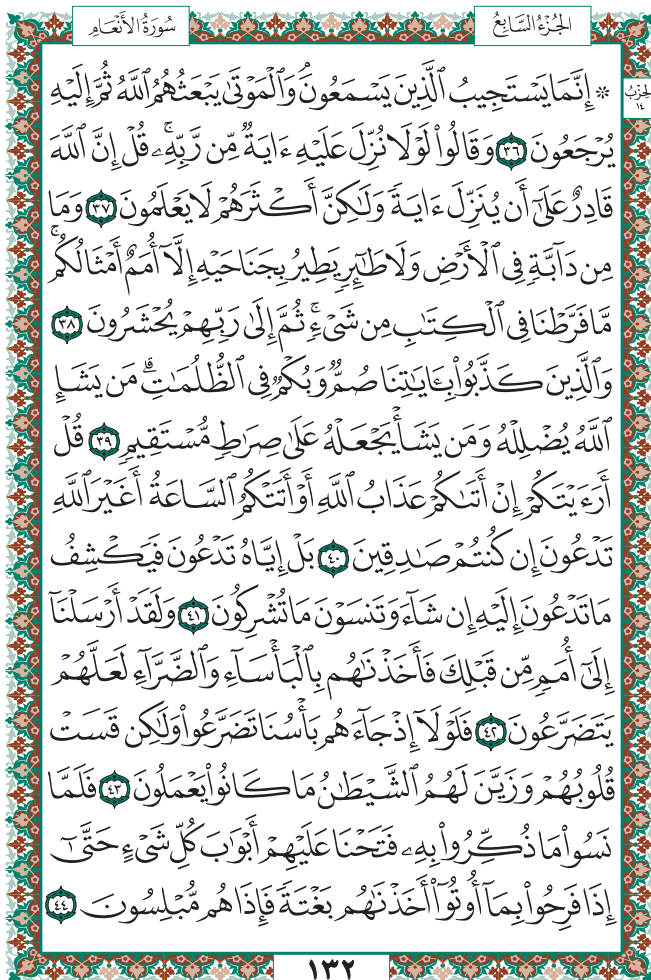 سُورَةُ الأَنْعَامِ
الجُزْءُ السَّابِعُ
الحِزْبُ
١٤
* إِنَّمَا يَسْتَجِيبُ ٱلَّذِينَ يَسْمَعُونَۘ وَٱلْمَوْتَىٰ يَبْعَثُهُمُ ٱللَّهُ ثُمَّ إِلَيْهِ
يُرْجَعُونَ ٣٦ وَقَالُوا۟ لَوْلَا نُزِّلَ عَلَيْهِ ءَايَةٌ مِّن رَّبِّهِۦۚ قُلْ إِنَّ ٱللَّهَ
قَادِرٌ عَلَىٰٓ أَن يُنَزِّلَ ءَايَةً وَلَٰكِنَّ أَكْثَرَهُمْ لَا يَعْلَمُونَ ٣٧ وَمَا
مِن دَآبَّةٍ فِى ٱلْأَرْضِ وَلَا طَٰٓئِرٍ يَطِيرُ بِجَنَاحَيْهِ إِلَّآ أُمَمٌ أَمْثَالُكُمۚ
مَّا فَرَّطْنَا فِى ٱلْكِتَٰبِ مِن شَىْءٍۚ ثُمَّ إِلَىٰ رَبِّهِمْ يُحْشَرُونَ ٣٨
وَٱلَّذِينَ كَذَّبُوا۟ بِـَٔايَٰتِنَا صُمٌّ وَبُكْمٌ فِى ٱلظُّلُمَٰتِۗ مَن يَشَإِ
ٱللَّهُ يُضْلِلْهُ وَمَن يَشَأْ يَجْعَلْهُ عَلَىٰ صِرَٰطٍ مُّسْتَقِيمٍ ٣٩ قُلْ
أَرَءَيْتَكُمْ إِنْ أَتَىٰكُمْ عَذَابُ ٱللَّهِ أَوْ أَتَتْكُمُ ٱلسَّاعَةُ أَغَيْرَ ٱللَّهِ
تَدْعُونَ إِن كُنتُمْ صَٰدِقِينَ ٤٠ بَلْ إِيَّاهُ تَدْعُونَ فَيَكْشِفُ
مَا تَدْعُونَ إِلَيْهِ إِن شَآءَ وَتَنسَوْنَ مَا تُشْرِكُونَ ٤١ وَلَقَدْ أَرْسَلْنَآ
إِلَىٰٓ أُمَمٍ مِّن قَبْلِكَ فَأَخَذْنَٰهُم بِٱلْبَأْسَآءِ وَٱلضَّرَّآءِ لَعَلَّهُمْ
يَتَضَرَّعُونَ ٤٢ فَلَوْلَآ إِذْ جَآءَهُم بَأْسُنَا تَضَرَّعُوا۟ وَلَٰكِن قَسَتْ
قُلُوبُهُمْ وَزَيَّنَ لَهُمُ ٱلشَّيْطَٰنُ مَا كَانُوا۟ يَعْمَلُونَ ٤٣ فَلَمَّا
نَسُوا۟ مَا ذُكِّرُوا۟ بِهِۦ فَتَحْنَا عَلَيْهِمْ أَبْوَٰبَ كُلِّ شَىْءٍ حَتَّىٰٓ
إِذَا فَرِحُوا۟ بِمَآ أُوتُوٓا۟ أَخَذْنَٰهُم بَغْتَةً فَإِذَا هُم مُّبْلِسُونَ ٤٤
١٣٢